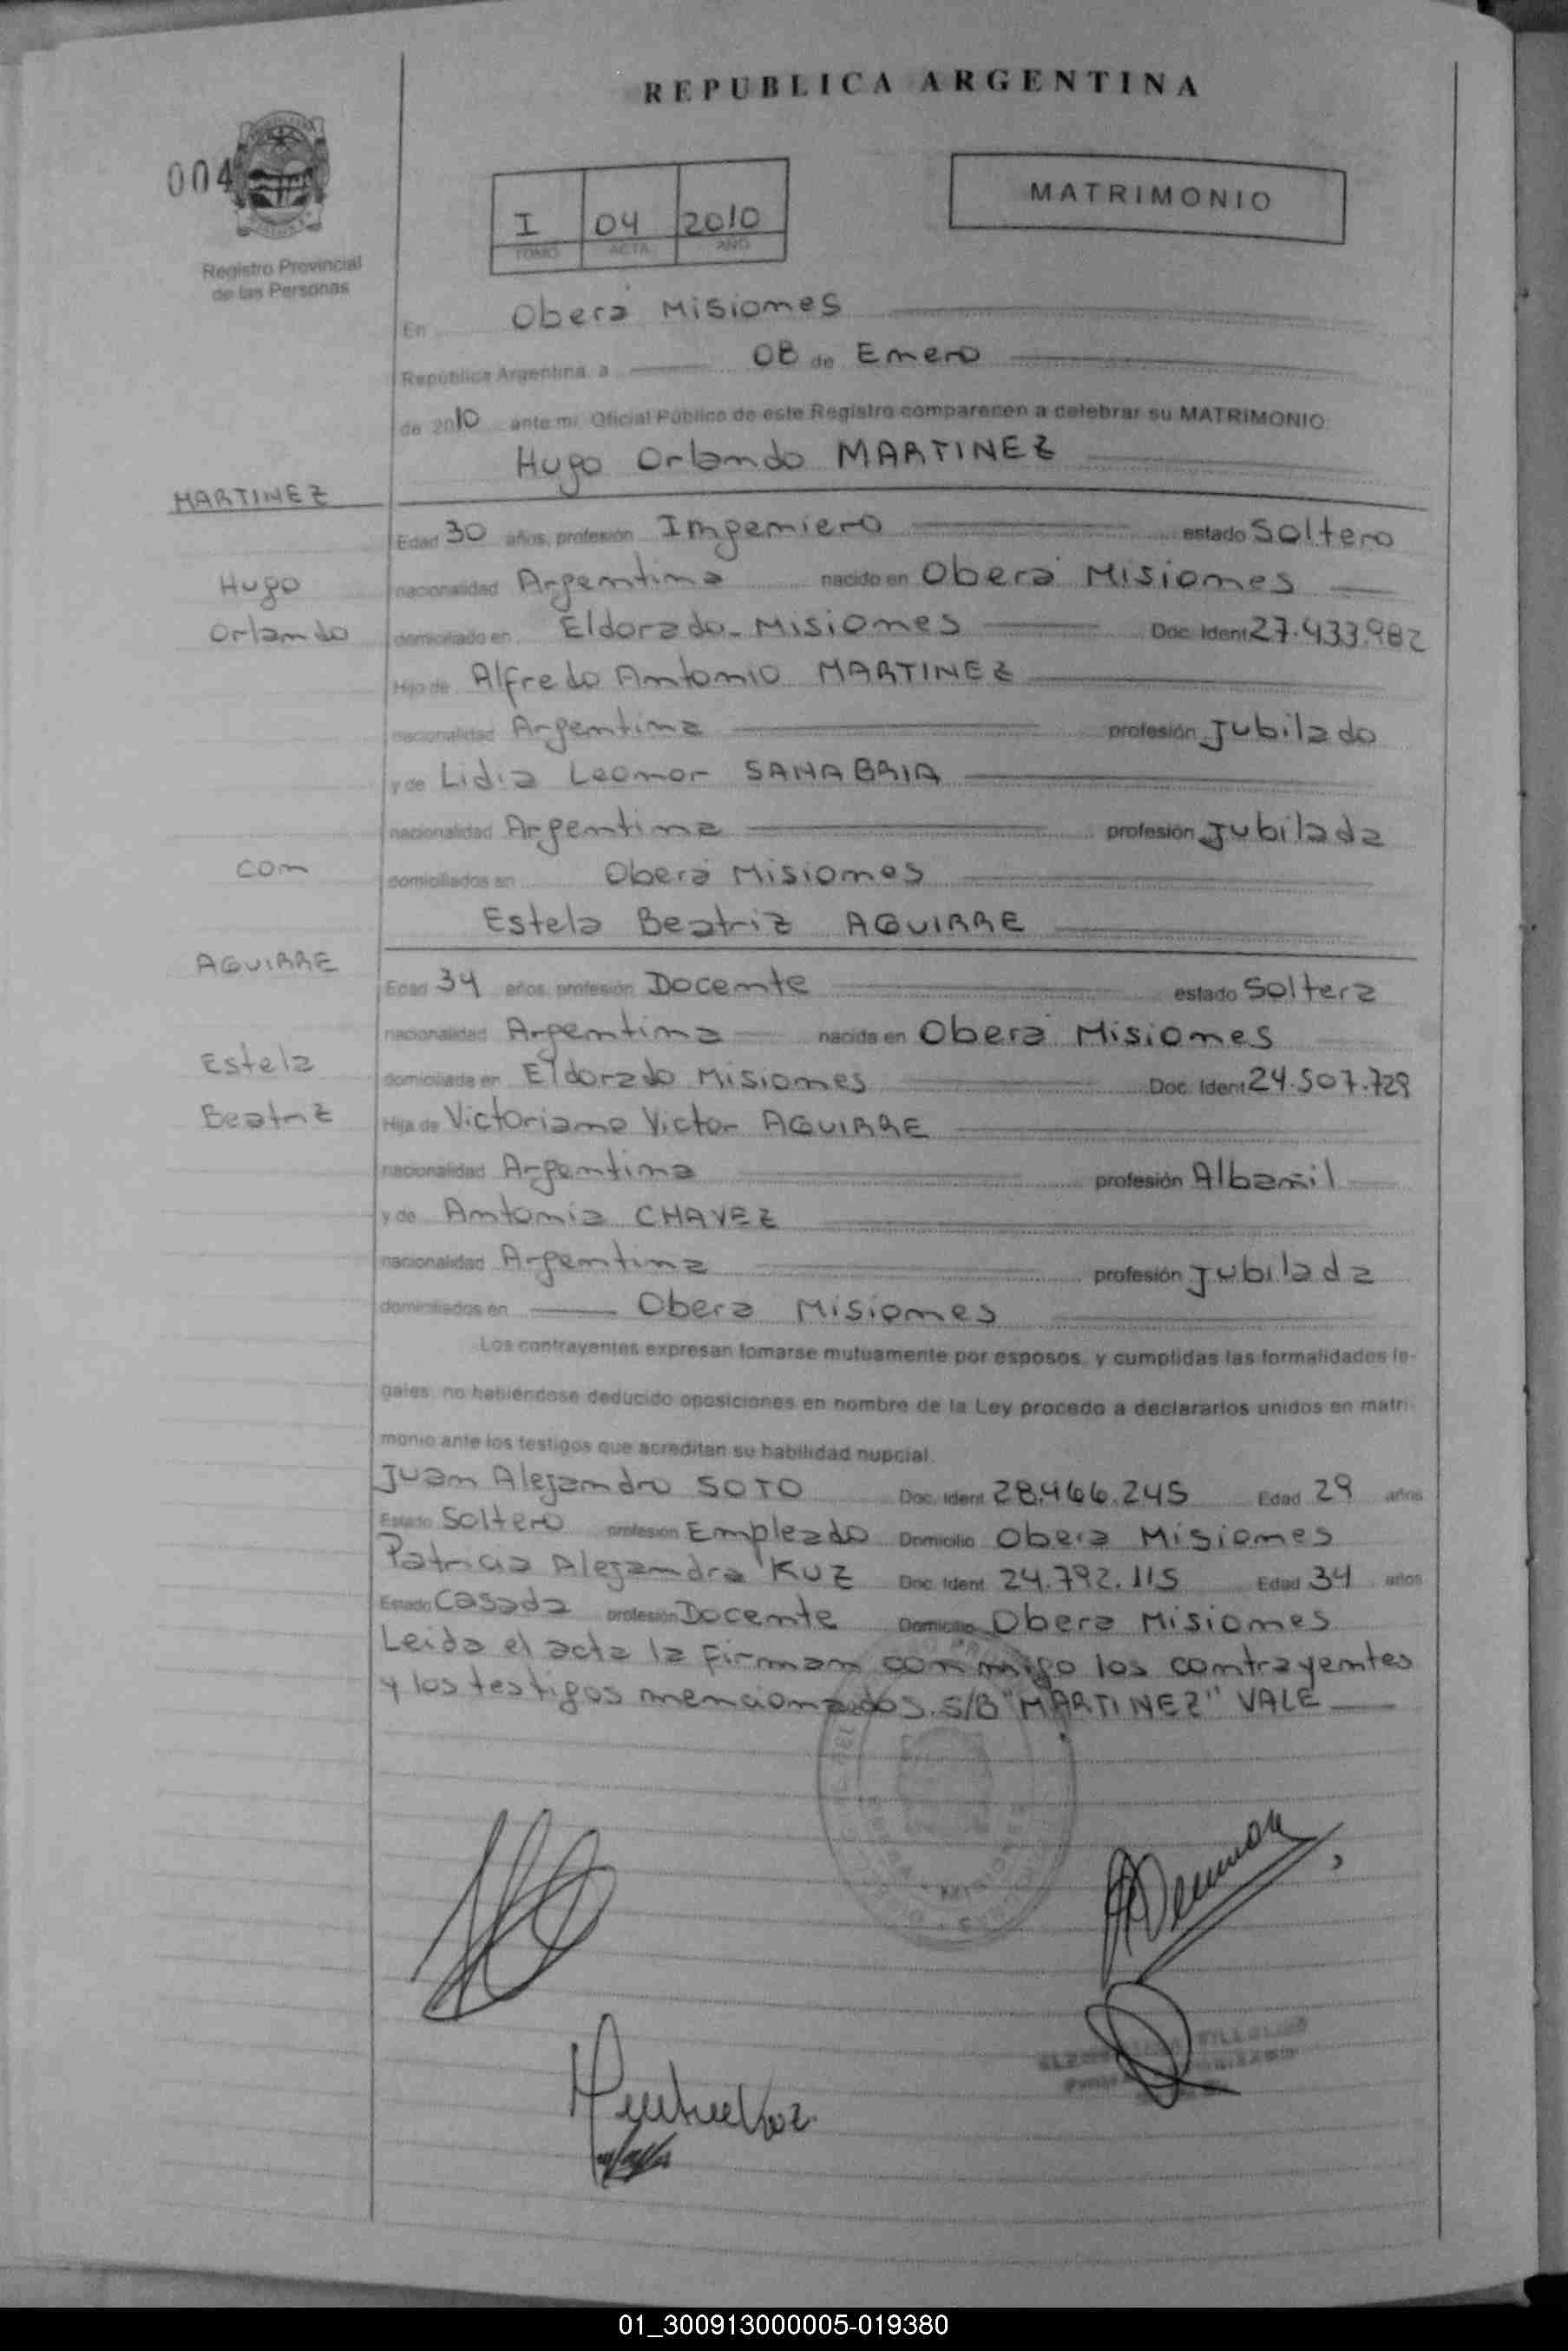 REPUBLICA ARGENTINA
004
I 04 2010
TOMO ACTA AÑO
MATRIMONIO
Registro Provincial
de las Personas
En Oberá Misiones
República Argentina, a 08 de Enero
de 2010 ante mi, Oficial Público de este Registro comparecen a celebrar su MATRIMONIO
Hugo Orlando MARTINEZ
MARTINEZ
Edad 30 años, profesión Ingeniero estado Soltero
Hugo
nacionalidad Argentina nacido en Oberá Misiones
Orlando
domiciliado en Eldorado - Misiones Doc. Ident 27.433.982
Hijo de Alfredo Antonio MARTINEZ
nacionalidad Argentina profesión Jubilado
y de Lidia Leonor SANABRIA
nacionalidad Argentina profesión Jubilada
con
domiciliados en Oberá Misiones
Estela Beatriz AGUIRRE
AGUIRRE
Edad 34 años, profesión Docente estado Soltera
nacionalidad Argentina nacida en Oberá Misiones
Estela
domiciliada en Eldorado Misiones Doc. Ident 24.507.729
Beatriz
Hija de Victoriano Victor AGUIRRE
nacionalidad Argentina profesión Albañil
y de Antonia CHAVEZ
nacionalidad Argentina profesión Jubilada
domiciliados en Obera Misiones
Los contrayentes expresan tomarse mutuamente por esposos, y cumplidas las formalidades le-
gales, no habiéndose deducido oposiciones en nombre de la Ley procedo a declararlos unidos en matri-
monio ante los testigos que acreditan su habilidad nupcial.
Juan Alejandro SOTO Doc. Ident 28.466.245 Edad 29 años
Estado Soltero profesión Empleado Domicilio Obera Misiones
Patricia Alejandra KUZ Doc. Ident 24.792.115 Edad 34 años
Estado Casada profesión Docente Domicilio Obera Misiones
Leida el acta la firman conmigo los contrayentes
y los testigos mencionados. S/B "MARTINEZ" VALE
01_300913000005-019380